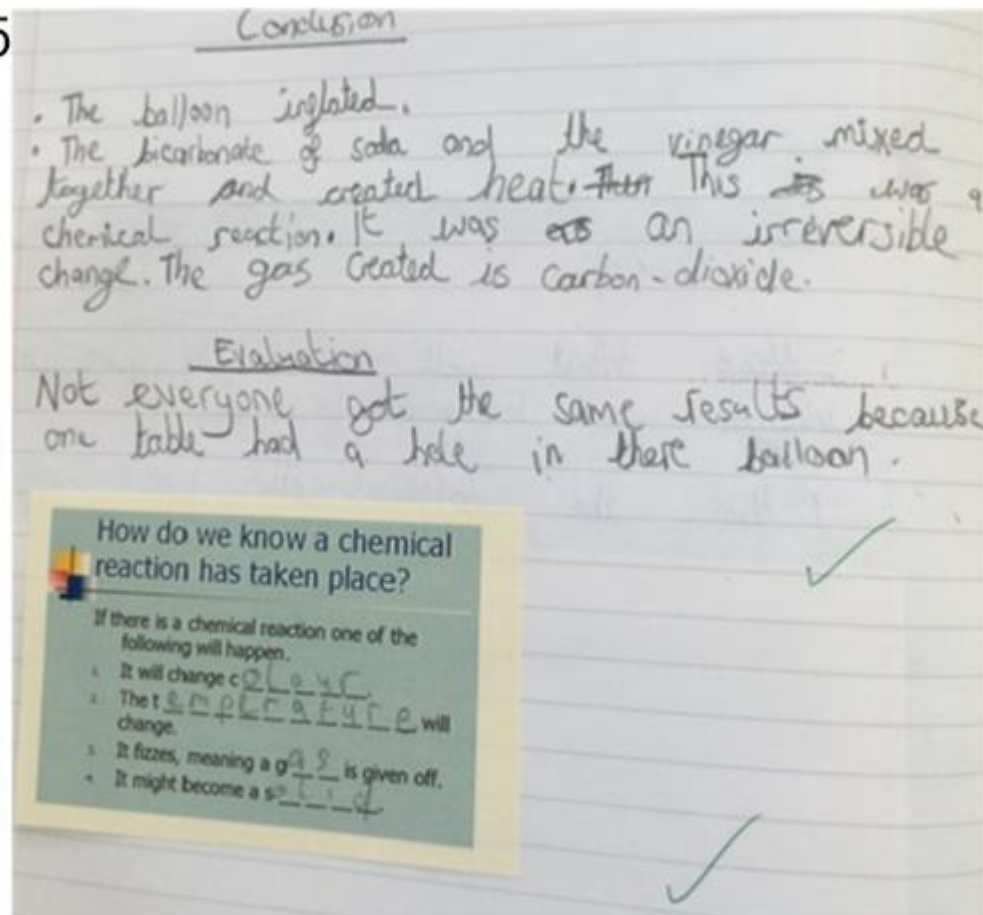 5
Conclusion
• The balloon inflated.
• The bicarbonate of soda and the vinegar mixed
together and created heat. This was a
chemical reaction. It was an irreversible
change. The gas created is carbon-dioxide.
Evaluation
Not everyone got the same results because
one table had a hole in there balloon.
How do we know a chemical
reaction has taken place?
If there is a chemical reaction one of the
following will happen.
1. It will change colour.
2. The temperature will
change.
3. It fizzes, meaning a gas is given off.
4. It might become a solid.